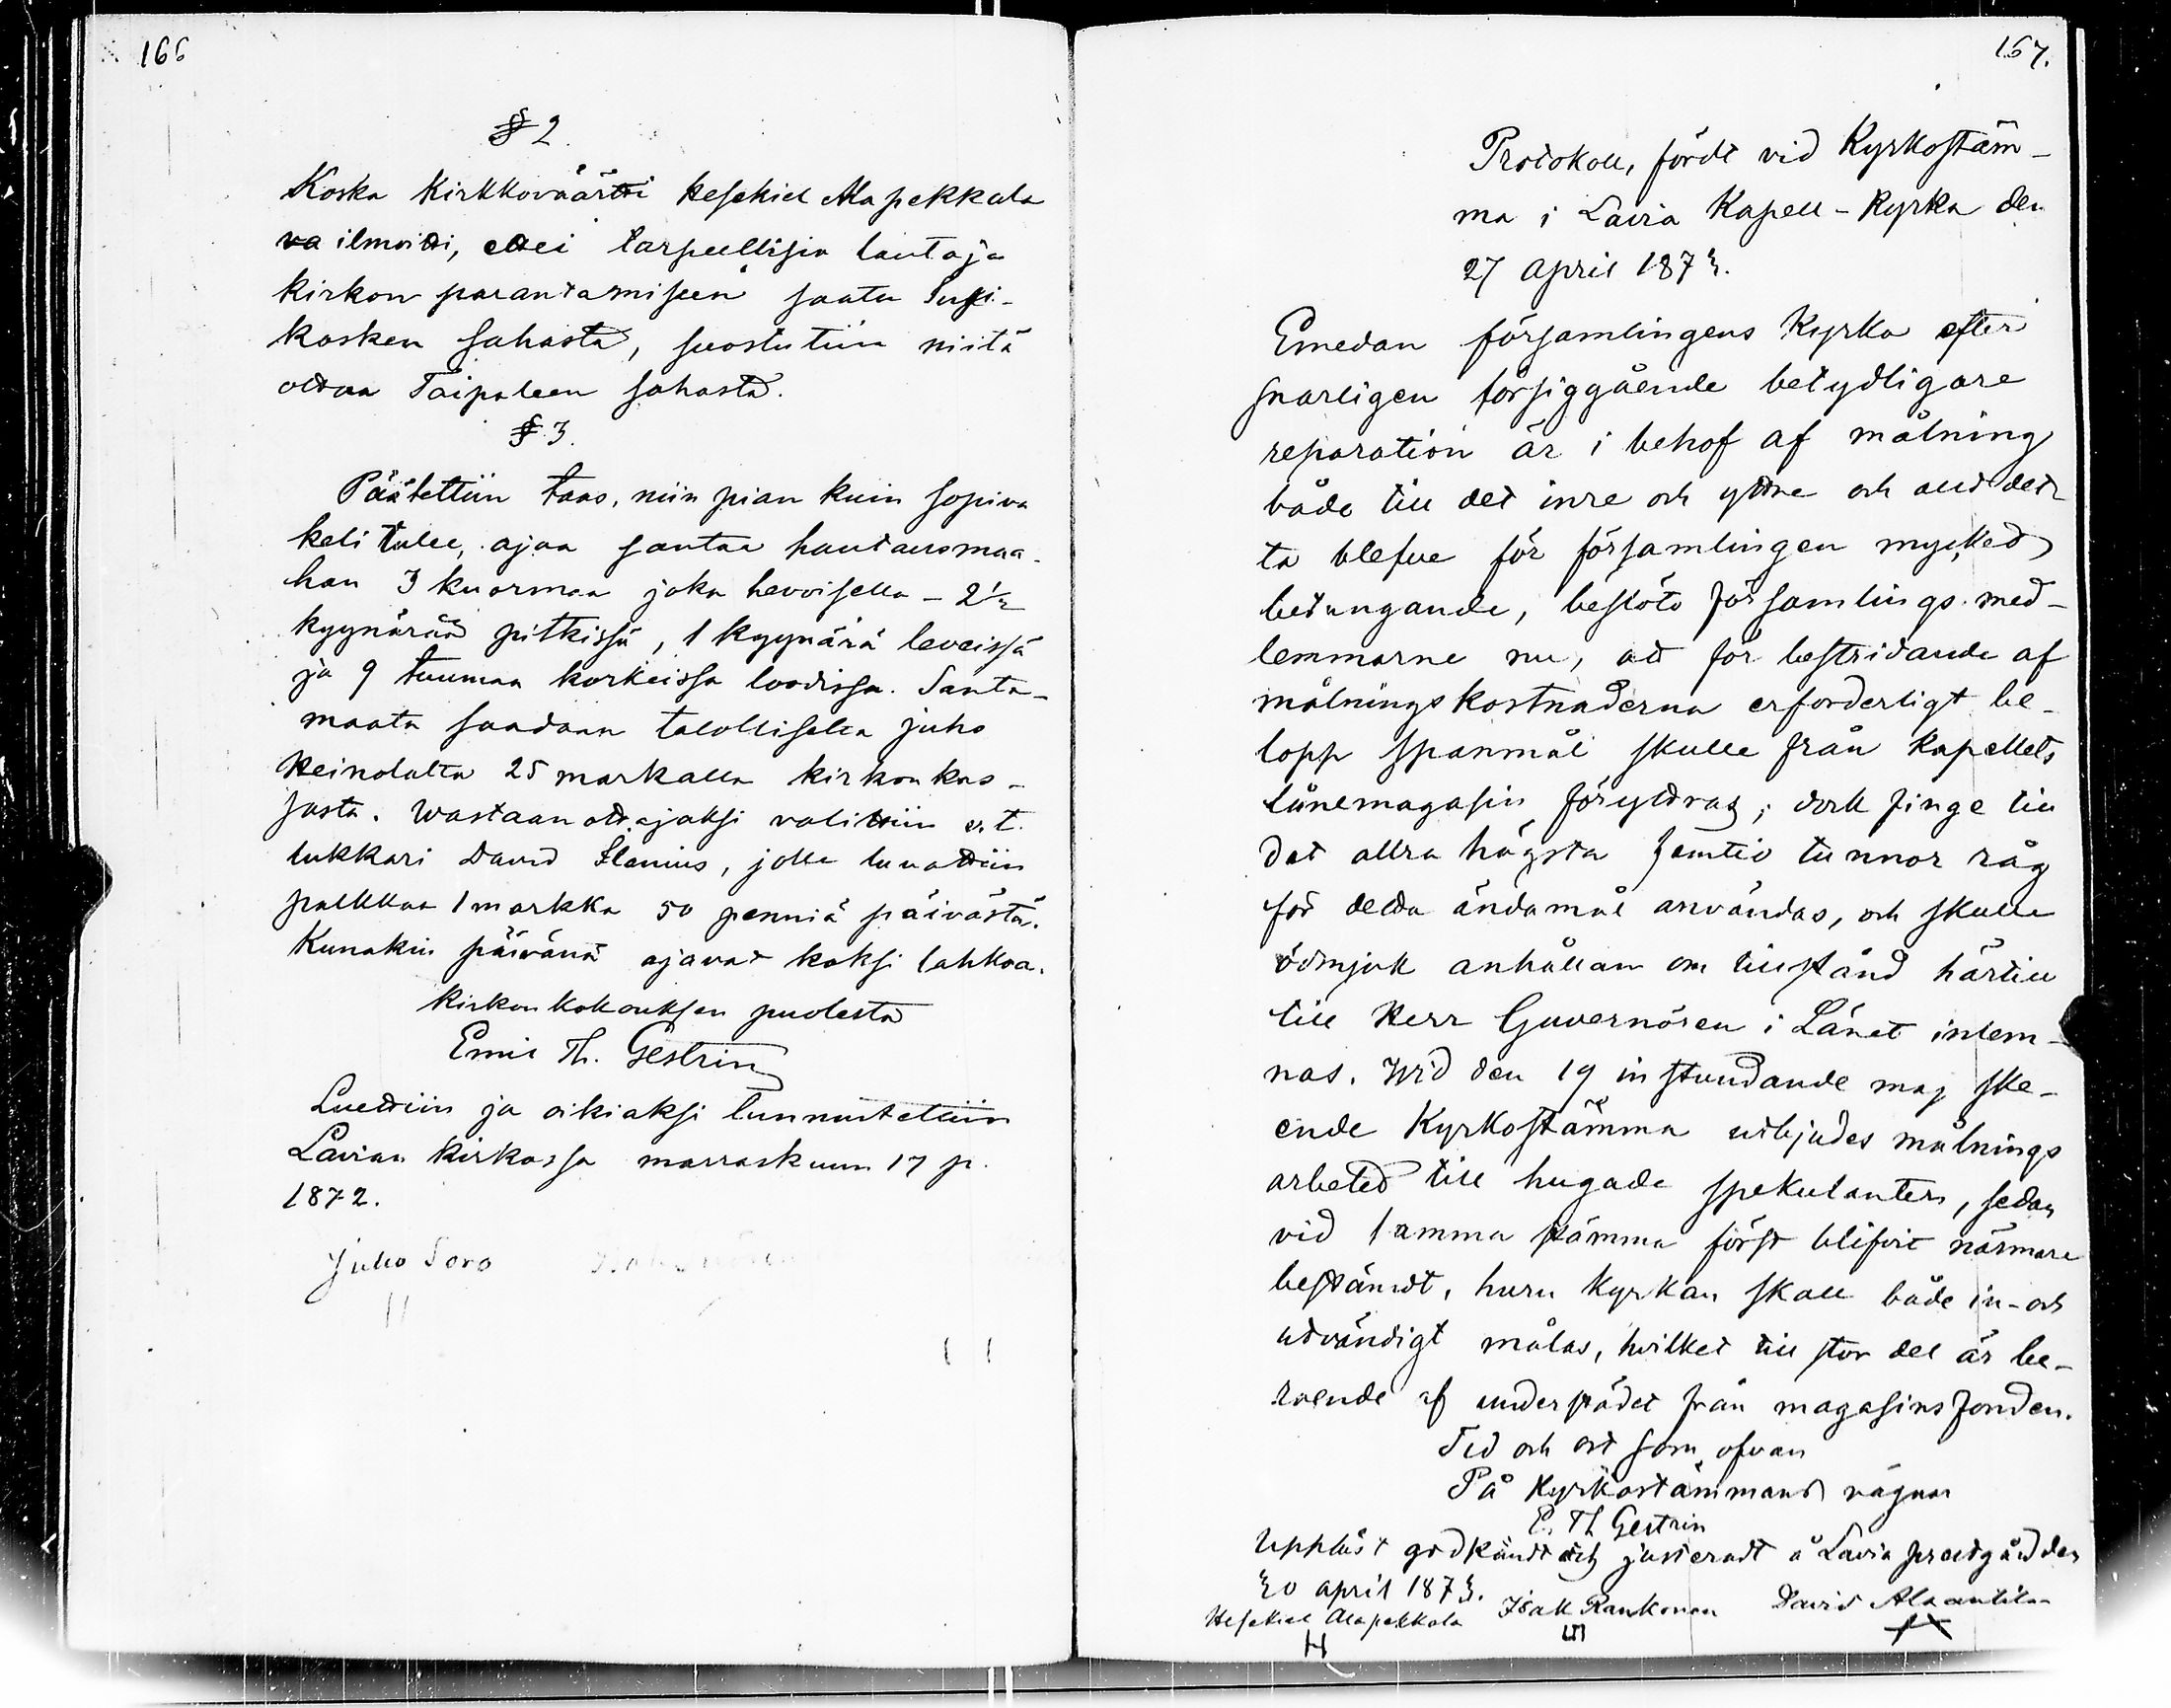 166
§ 2.
Koska Kirkkoväärtti Hesekiel Alapekkala
ilmoitti, ettei tarpeellisia lautoja
kirkon parantamiseen saatu Susi-
kosken sahasta, suostutiin niitä
ottaa Taipaleen sahasta.
§ 3.
Päätettiin taas, niin pian kuin sopiva
keli tulee, ajaa santaa hautausmaa-
han 3 kuormaa joka hevoisella - 2½
kyynärää pitkissä, 1 kyynärä leveissä
ja 9 tuumaa korkeissa loodissa. Santa-
maata saadaan talolliselta Juho
Heinolalta 25 markalla kirkon kas-
sasta. Wastaanottajaksi valittiin v.t.
lukkari David Stenius, jolle luvattiin
palkkaa 1 markka 50 penniä päivästä.
Kunakin päivänä ajavat kaksi lahkoa.
Kirkonkokouksen puolesta
Emil Th. Gestrin
Luettiin ja oikiaksi tunnustettiin
Lavian kirkossa marraskuun 17 p.
1872.
Juho Soro
167.
Protokoll, fördt vid Kyrkostäm-
ma i Lavia Kapell-Kyrka den
27 April 1873.
Emedan församlingens Kyrka efter
snarligen försiggående betydligare
reparation är i behof af målning
både till det inre och yttre och allt det-
ta blefve för församlingen mycket
betungande, beslöto församlings med-
lemmarne nu, att för bestridande af
målningskostnaderna erforderligt be-
lopp spanmål skulle från Kapellets
lånemagasin föryttras; dock finge till
det allra högsta femtio tunnor råg
för detta ändamål användas, och skulle
ödmjuk anhållan om tillstånd härtill
till Herr Guvernören i Länet inlem-
nas. Wid den 19 instundande maj ske-
ende Kyrkostämma utbjudes målnings
arbetet till hugade spekulanter, sedan
vid samma stämma först blifvit närmare
bestämdt, huru kyrkan skall både in- och
utvändigt målas, hvilket till stor del är be-
roende af understödet från magasinsfonden.
Tid och ort som ofvan
På Kyrkostämmans vägnar
E. Th Gestrin
Uppläst godkändt och justeradt å Lavia prestgård den
30 april 1873.
Hesekiel Alapekkala Isak Rankonen David Alaanttila
H